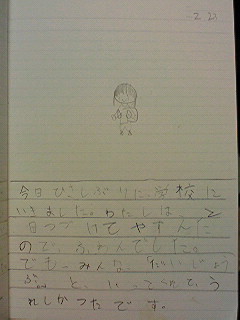 2.23
今日ひさしぶりに、学校に
いきました。わたしは、2
日つづけてやすんだ
ので、ふあんでした。
でも、みんな、だいじょう
ぶ。と、いってくれて、う
れしかったです。